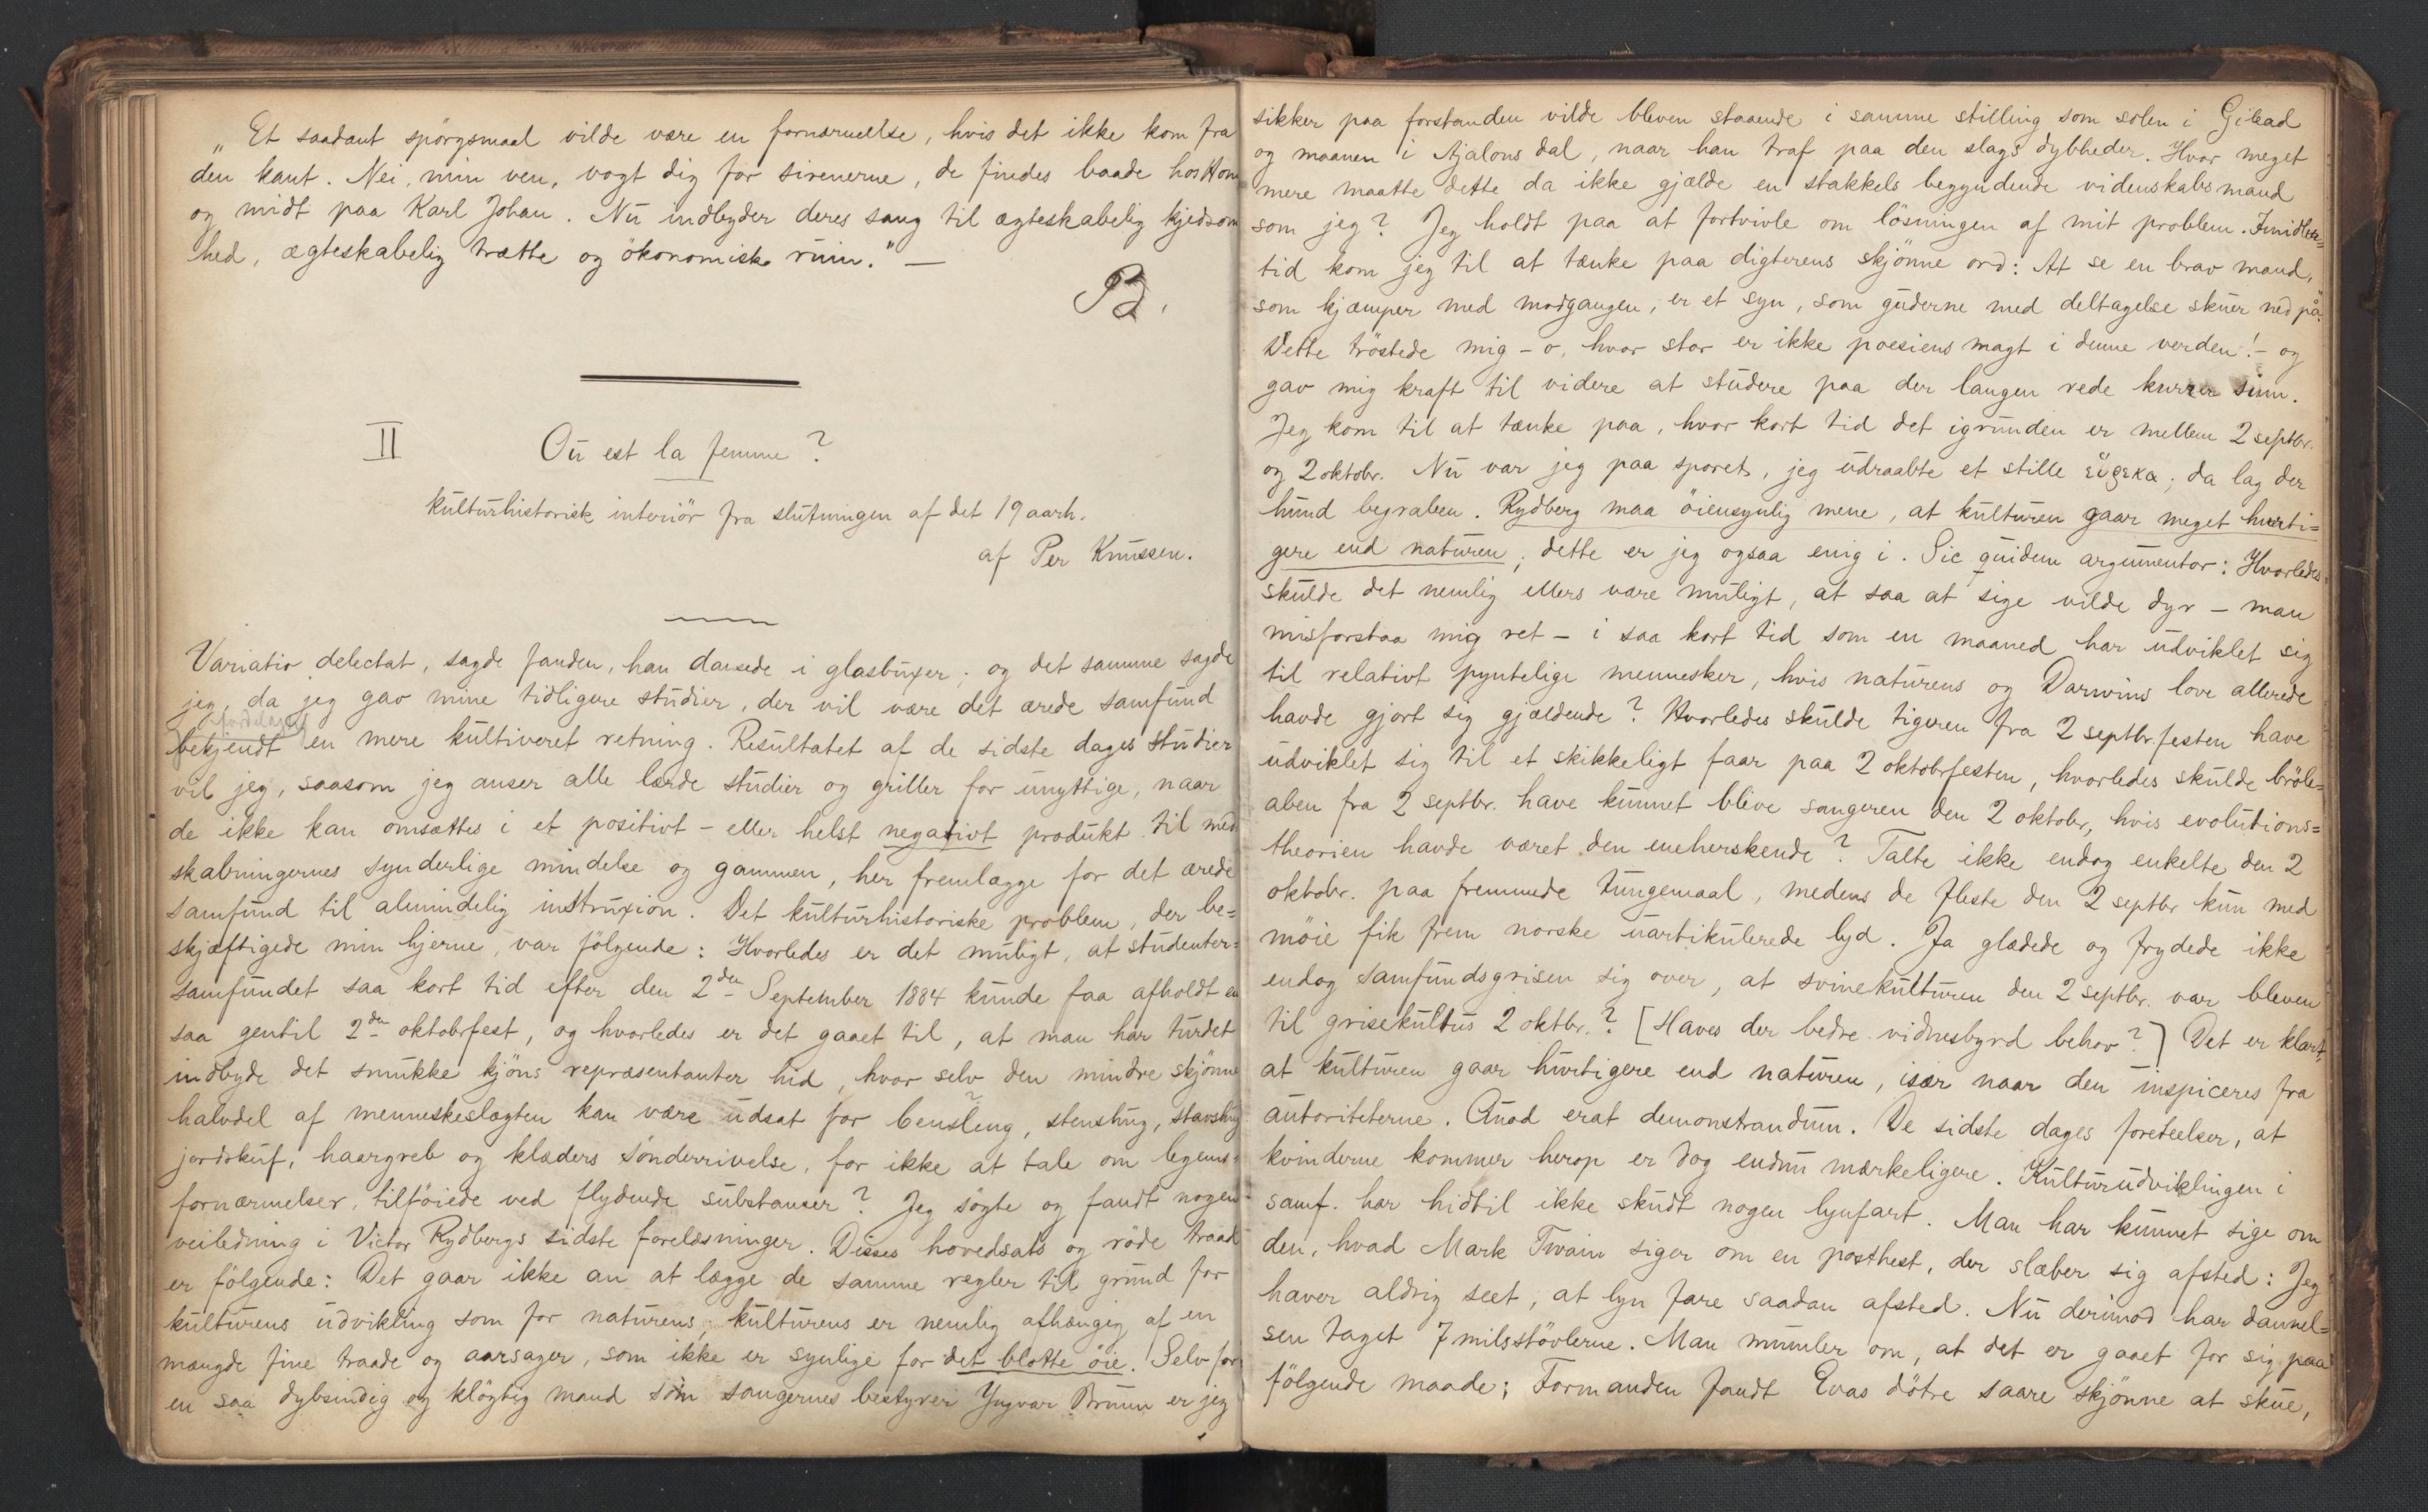 „Et saadant spörgsmaal vilde være en fornærmelse, hvis det ikke kom fra
den kant. Nei, min ven, vogt dig for sirenerne, de findes baade hos Hom
og midt paa Karl Johan. Nu indbyder deres sang til ægteskabelig kjedsom
hed, ægteskabelig trætte og ökonomisk ruin." —
II Ou est la femme?
Kulturhistorisk interiör fra slutningen af det 19 aarh.
af Per Knussen.
Variatio delectat, sagde fanden, han dansede i glasbuxer; og det samme sagde
jeg, da jeg gav mine tidligere studier, der vil være det ærede samfund
bekjendt en mere kultiveret retning. Resultatet af de sidste dages studier
vil jeg, saasom jeg anser alle lærde studier og griller for unyttige, naar
de ikke kan omsættes i et positivt – eller helst negativt produkt til med
skabningernes synderlige mindelse og gammen, her fremlægge for det ærede
samfund til almindelig instruxion. Det kulturhistoriske problem, der be=
skjæftigede min hjerne, var fölgende: Hvorledes er det muligt, at studenter=
samfundet saa kort tid efter den 2den September 1884 kunde faa afholdt en
saa gentil 2den oktobrfest, og hvorledes er det gaaet til, at man har turdet
indbyde det smukke kjöns repræsentanter hid, hvor selv den mindre skjönne
halvdel af menneskeslægten kan være udsat for bensleng, stensling, stavsling
jordskuf, haargreb og klæders sönderrivelse, for ikke at tale om legems=
fornærmelser, tilföiede ved flydende substanser? Jeg sögte og fandt nogen
veiledning i Victor Rydbergs sidste forelæsninger. Disses hovedsats og röde traad
er fölgende: Det gaar ikke an at lægge de samme regler til grund for
kulturens udvikling som for naturens; kulturens er nemlig afhængig af en
mængde fine traade og aarsager, som ikke er synlige for det blotte öie. Selv for
en saa dybsindig og klögtig mand som sangernes bestyrer Yngvar Bruun er jeg
sikker paa forstanden vilde bleven staaende i samme stilling som solen i Gilead
og maanen i Ajalons dal, naar han traf paa den slags dybheder. Hvor meget
mere maatte dette da ikke gjælde en stakkels begyndende videnskabsmand
som jeg? Jeg holdt paa at fortvivle om lösningen af mit problem. Imidler=
tid kom jeg til at tænke paa digterens skjönne ord: At se en brav mand,
som kjæmper med modgangen, er et syn, som guderne med deltagelse skuer ned på.
Dette tröstede mig – o, hvor stor er ikke poesiens magt i denne verden! – og
gav mig kraft til videre at studere paa der langen rede kurzen sinn.
Jeg kom til at tænke paa, hvor kort tid det igrunden er mellem 2 septbr.
og 2 oktobr. Nu var jeg paa sporet, jeg udraabte et stille εὕρεκα; da lag der
hund begraben. Rydberg maa öiensynlig mene, at kulturen gaar meget hurti=
gere end naturen; dette er jeg ogsaa enig i. Sic quidem argumentor: Hvorledes
skulde det nemlig ellers være muligt, at saa at sige vilde dyr – man
misforstaa mig ret – i saa kort tid som en maaned har udviklet sig
til relativt pyntelige mennesker, hvis naturens og Darwins love allerede
havde gjort sig gjældende? Hvorledes skulde tigeren fra 2 septbr.festen have
udviklet sig til et skikkeligt faar paa 2 oktobrfesten, hvorledes skulde bröle=
aben fra 2 septbr. have kunnet blive sangeren den 2 oktobr, hvis evolutions=
theorien havde været den eneherskende? Talte ikke endog enkelte den 2
oktobr. paa fremmede tungemaal, medens de fleste den 2 septbr kun med
möie fik frem norske uartikulerede lyd. Ja glædede og frydede ikke
endog samfundsgrisen sig over, at svinekulturen den 2 septbr. var bleven
til grisekultus 2 oktbr.? [Haves der bedre vidnesbyrd behov?] Det er klart,
at kulturen gaar hurtigere end naturen, især naar den inspiceres fra
autoriteterne. Quod erat demonstrandum. De sidste dages foreteelser, at
kvinderne kommer herop er dog endnu mærkeligere. Kulturudviklingen i
samf. har hidtil ikke skudt nogen lynfart. Man har kunnet sige om
den, hvad Mark Twain siger om en posthest, der slæber sig afsted: Jeg
haver aldrig seet, at lyn fare saadan afsted. Nu derimod har dannel=
sen taget 7milsstövlerne. Man mumler om, at det er gaaet for sig paa
fölgende maade: Formanden fandt Evas dötre saare skjönne at skue,